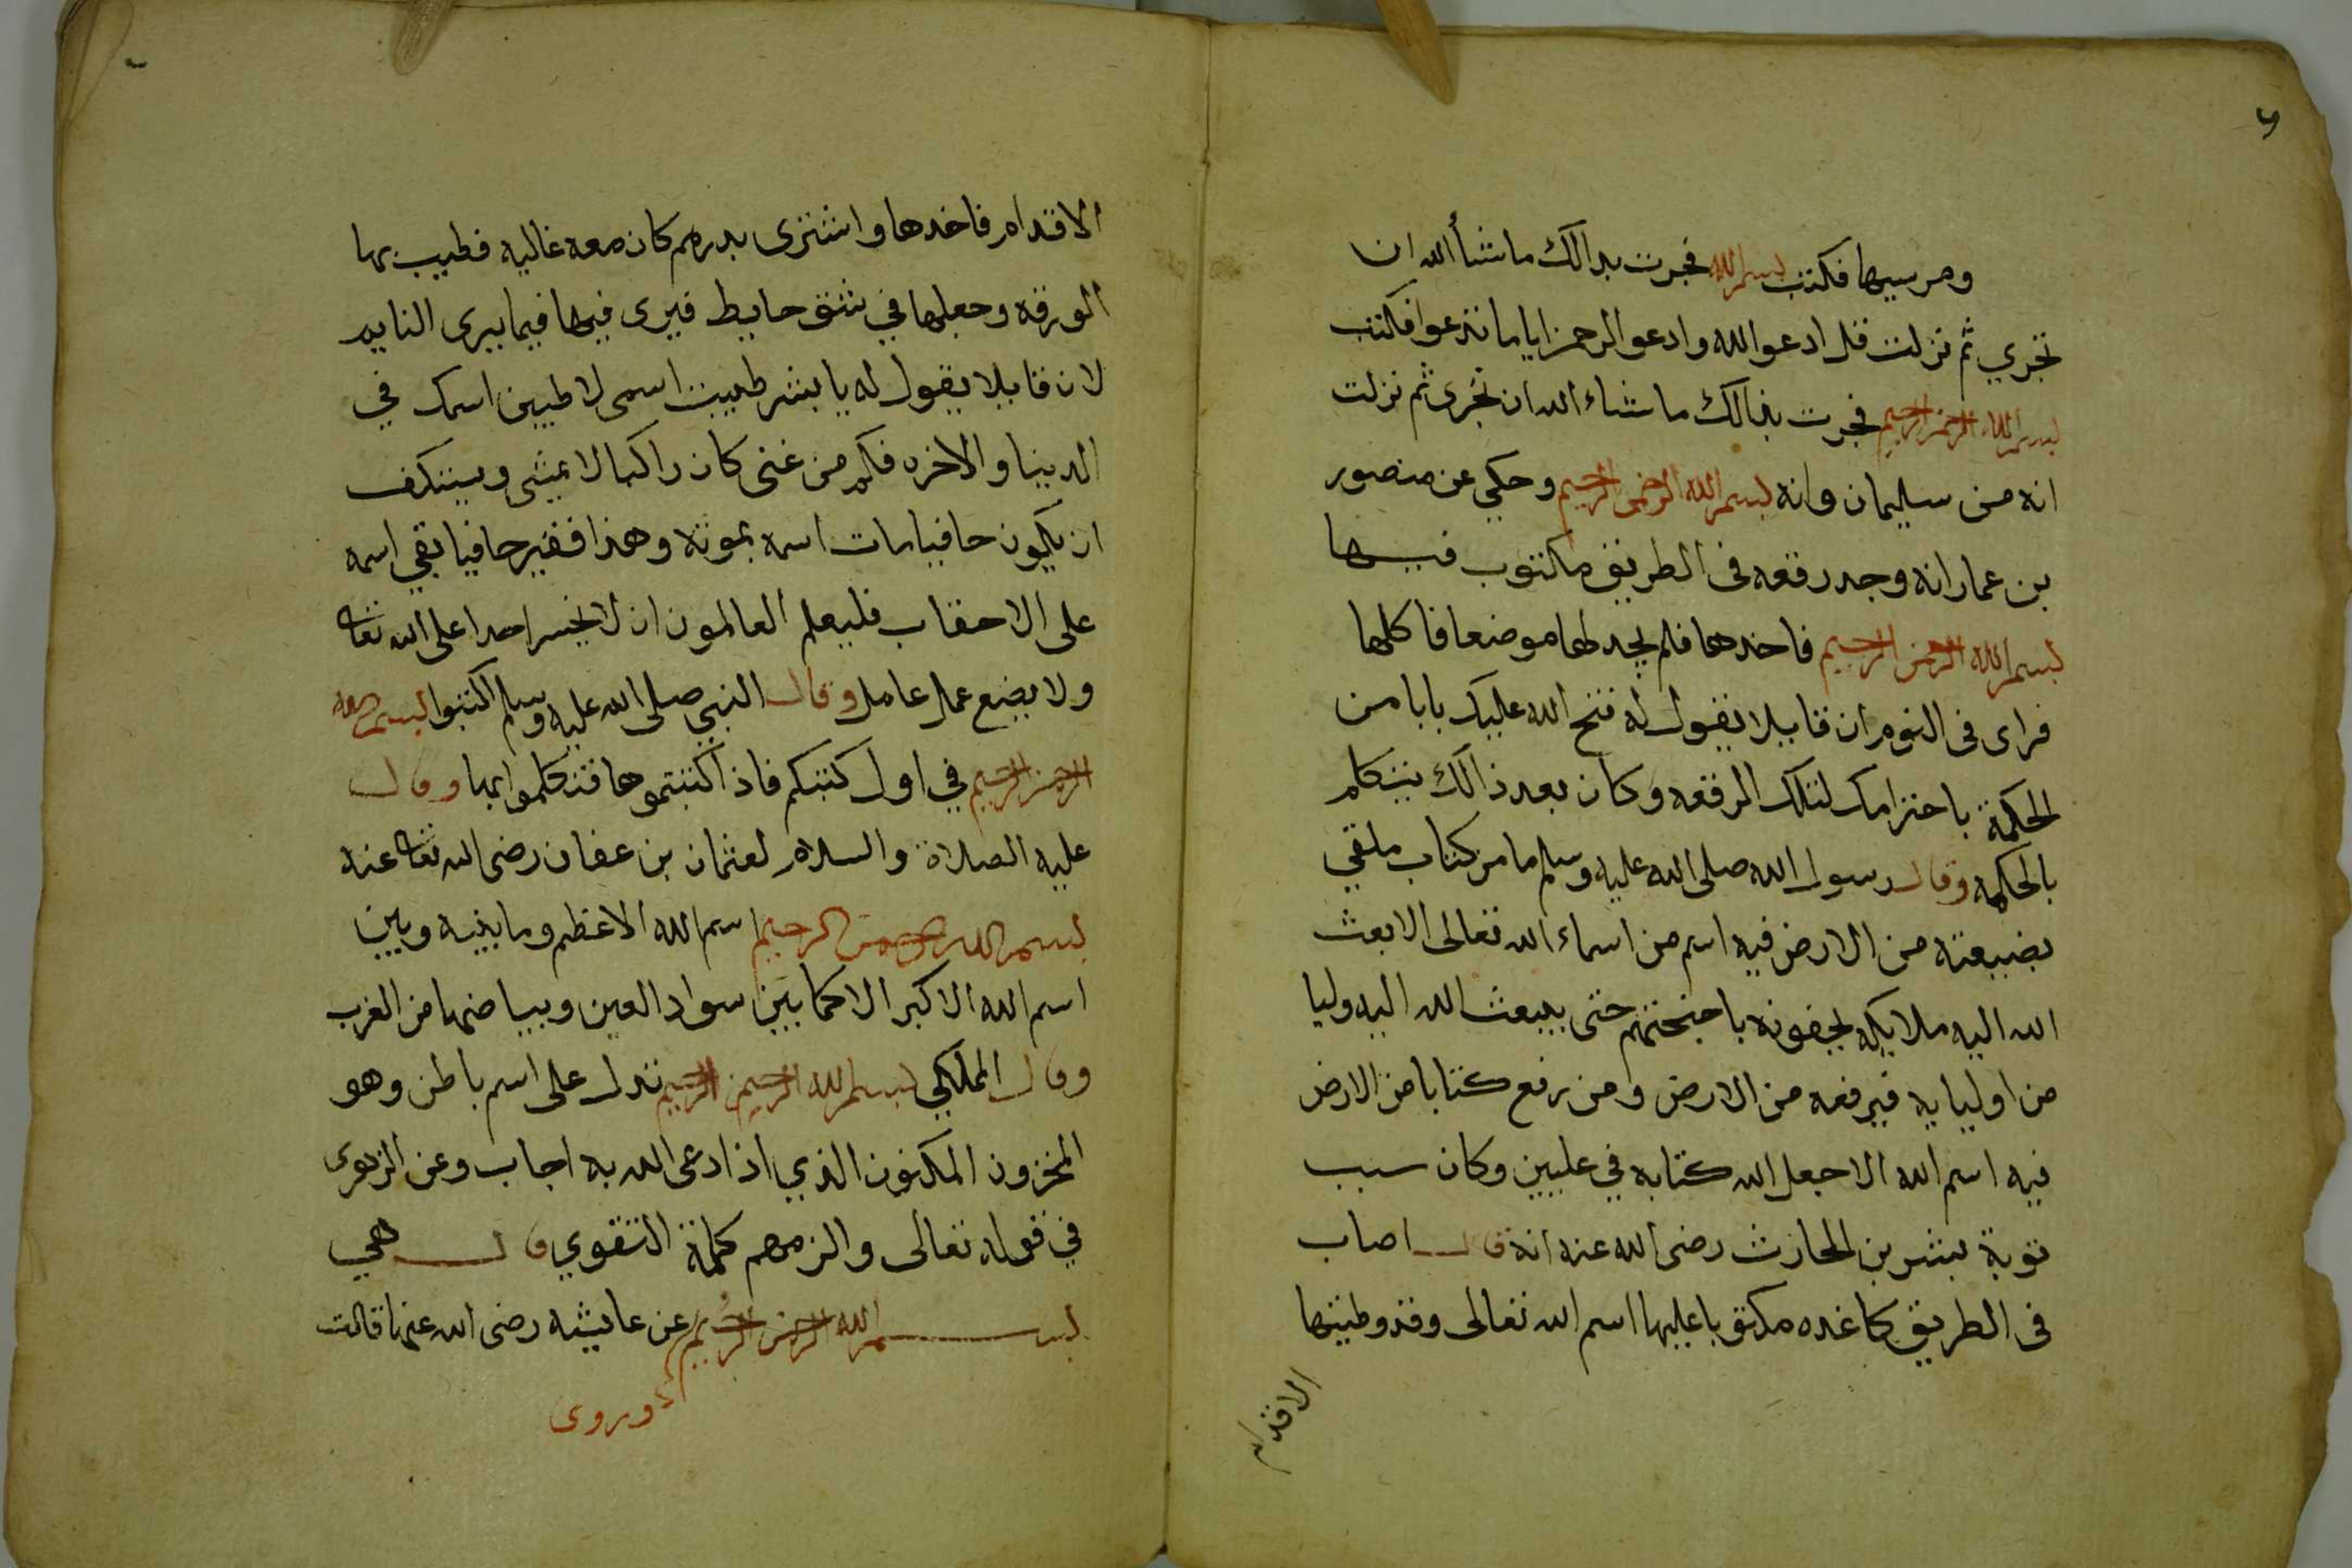 ومرسيها فكتب بسم الله فجرت بدالك ما شأ الله ان
تجري ثم نزلت قل ادعو الله وادعو الرحمن ايا ما تدعوا فكتب
بسم الله الرحمن الرحيم فجرت بذالك ما شاء الله ان تجرى ثم نزلت
انه من سليمان وانه بسم الله الرحمن الرحيم وحكي عن منصور
بن عمار انه وجد رقعه فى الطريق مكتوب فيها
بسم الله الرحمن الرحيم فاخدها فلم يجد لها موضعا فاكلها
فراى فى النوم ان قايلا يقول له فتح الله عليك بابا من
الحكمة باحترامك لتلك الرقعه وكان بعد ذالك يتكلم
بالحكمه وقال رسول الله صلى الله عليه وسلم ما من كتاب ملقي
بضيعته من الارض فيه اسم من اسماء الله تعالى الا بعث
الله اليه ملايكه يحفونه باجنحتهم حتى يبعث الله اليه وليا
من اوليايه فيرفعه من الارض ومن رفع كتابا من الارض
فيه اسم الله الا جعل الله كتابه في عليين وكان سبب
توبة بشر بن الحارث رضى الله عنه انه قال اصاب
فى الطريق كاغده مكتوبا عليها اسم الله تعالى وقد وطيتها
الاقدام
الاقدام فاخدها واشترى بدرهم كان معه غاليه فطيب بها
الورقه وجعلها في شق حايط فيرى فيها فيما يرى النايم
لان قايلا يقول له يا بشر طيبت اسمى لاطيبن اسمك في
الدينا والاخره فكم من غنى كان راكبا لا يمشى ويستنكف
ان يكون حافيا مات اسمه بموته وهذا فقير حافيا بقي اسمه
على الاحقاب فليعلم العالمون ان لا يخسر احدا على الله تعالى
ولا يضيع عمل عامل وقال النبي صلى الله عليه وسلم اكتبوا بسم الله
الرحمن الرحيم في اول كتبكم فاذا كتبتموها فتكلموا بها وقال
عليه الصلاة والسلام لعثمان بن عفان رضى الله تعالى عنه
بسم الله الرحمن الرحيم اسم الله الاعظم وما بينه وبين
اسم الله الاكبر الا كما بين سواد العين وبياضها من القرب
وقال المكي بسم الله الرحمن الرحيم تدل على اسم باطن وهو
المخزون المكنون الذي اذا دعى الله به اجاب وعن الزهرى
في قوله تعالى والزمهم كلمة التقوي قال هي
بسم الله الرحمن الرحيم عن عايشه رضى الله عنها قالت
وروى